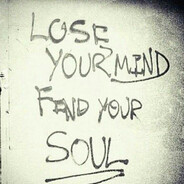 LOSE
YOUR MIND
FIND YOUR
SOUL